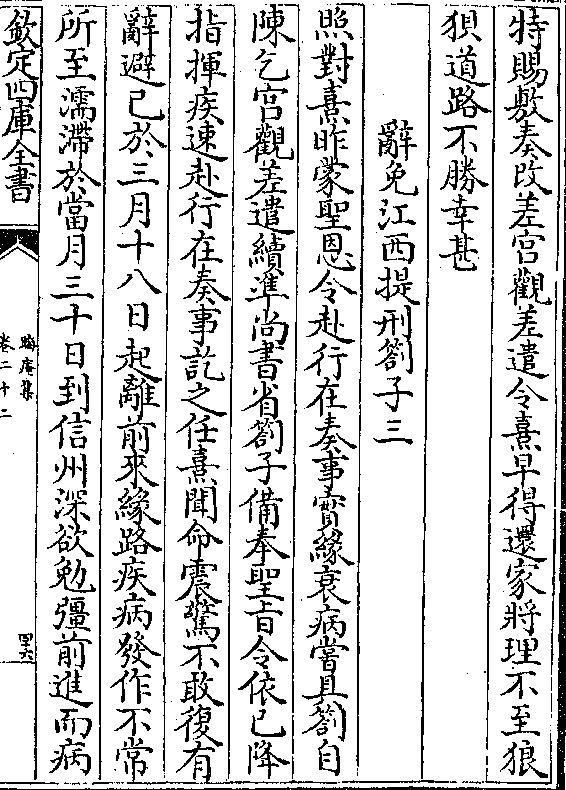 特賜敷奏改差宫觀差遣令熹早得還家將理不至狼
狽道路不勝幸甚
辭免江西提刑劄子三
照對熹昨蒙聖恩令赴行在奏事實緣衰病嘗具劄自
陳乞宫觀差遣續準尚書省劄子備奉聖旨令依已降
指揮疾速赴行在奏事訖之任熹聞命震驚不敢復有
辭避已於三月十八日起離前來緣路疾病發作不常
所至濡滯於當月三十日到信州深欲勉彊前進而病
欽定四庫全書
晦庵集
卷二十二
四六